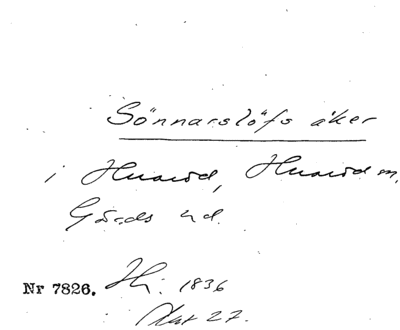 Sönnarslöfs åker
i Huaröd, Huaröd m,
Gärds hd.
Nr 7826. Hi. 1836
Akt 27.